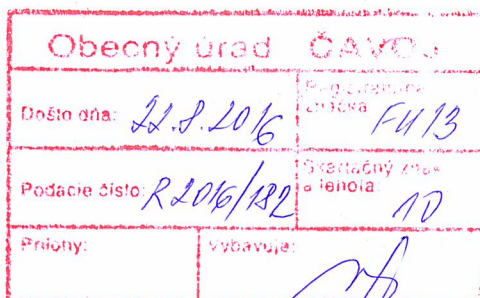 Obecný úrad ČAVOJ
Došlo dňa: 22.8.2016
Registratúrna značka FU13
Podacie číslo: R2016/182
Skartačný znak a lehota: 10
Prílohy:
Vybavuje: